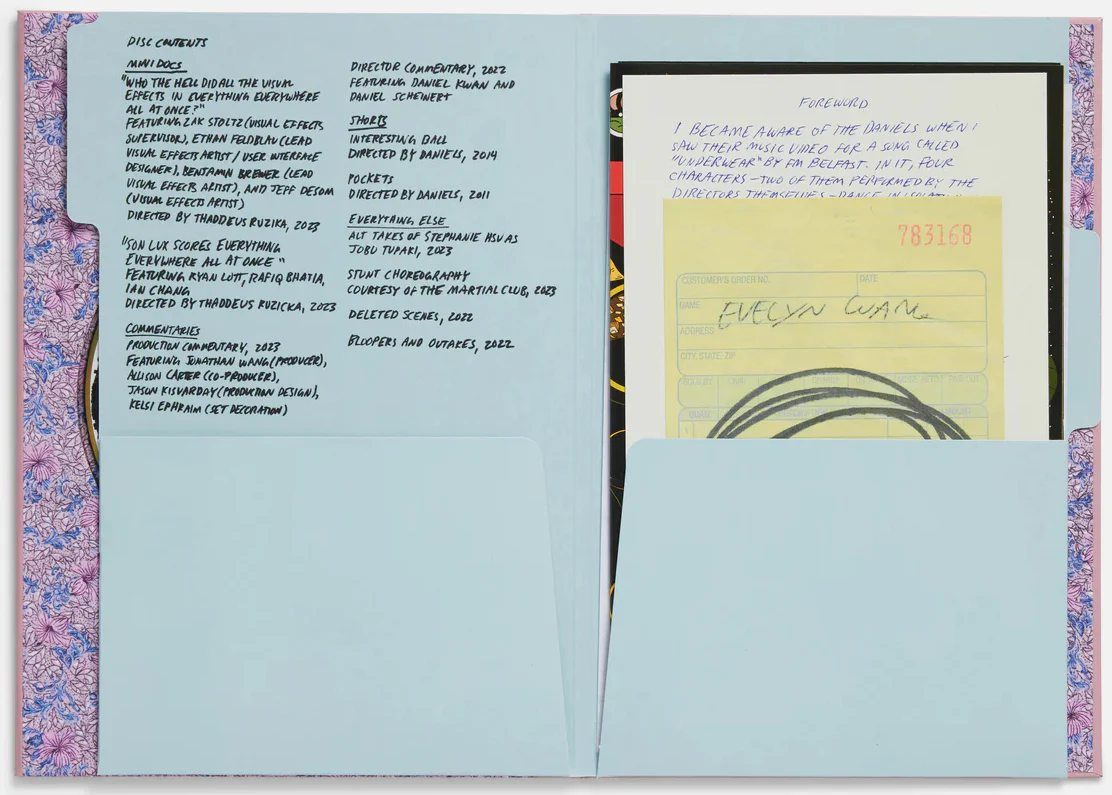 DISC CONTENTS
MINI DOCS
"WHO THE HELL DID ALL THE VISUAL
EFFECTS IN EVERYTHING EVERYWHERE
ALL AT ONCE?"
FEATURING ZAK STOLTZ (VISUAL EFFECTS
SUPERVISOR), ETHAN FELDBAU (LEAD
VISUAL EFFECTS ARTIST / USER INTERFACE
DESIGNER), BENJAMIN BREWER (LEAD
VISUAL EFFECTS ARTIST), AND JEFF DESOM
(VISUAL EFFECTS ARTIST)
DIRECTED BY THADDEUS RUZIKA, 2023
"SON LUX SCORES EVERYTHING
EVERYWHERE ALL AT ONCE"
FEATURING RYAN LOTT, RAFIQ BHATIA,
IAN CHANG
DIRECTED BY THADDEUS RUZICKA, 2023
COMMENTARIES
PRODUCTION COMMENTARY, 2023
FEATURING JONATHAN WANG (PRODUCER),
ALLISON CARTER (CO-PRODUCER),
JASON KISVARDAY (PRODUCTION DESIGN),
KELSI EPHRAIM (SET DECORATION)
DIRECTOR COMMENTARY, 2022
FEATURING DANIEL KWAN AND
DANIEL SCHEINERT
SHORTS
INTERESTING BALL
DIRECTED BY DANIELS, 2014
POCKETS
DIRECTED BY DANIELS, 2011
EVERYTHING ELSE
ALT TAKES OF STEPHANIE HSU AS
JOBU TUPAKI, 2023
STUNT CHOREOGRAPHY
COURTESY OF THE MARTIAL CLUB, 2023
DELETED SCENES, 2022
BLOOPERS AND OUTAKES, 2022
FOREWORD
I BECAME AWARE OF THE DANIELS WHEN I
SAW THEIR MUSIC VIDEO FOR A SONG CALLED
"UNDERWEAR" BY FM BELFAST. IN IT, FOUR
CHARACTERS – TWO OF THEM PERFORMED BY THE
DIRECTORS THEMSELVES – DANCE IN
783168
CUSTOMER'S ORDER NO.
DATE
NAME
EVELYN WANG
ADDRESS
CITY, STATE, ZIP